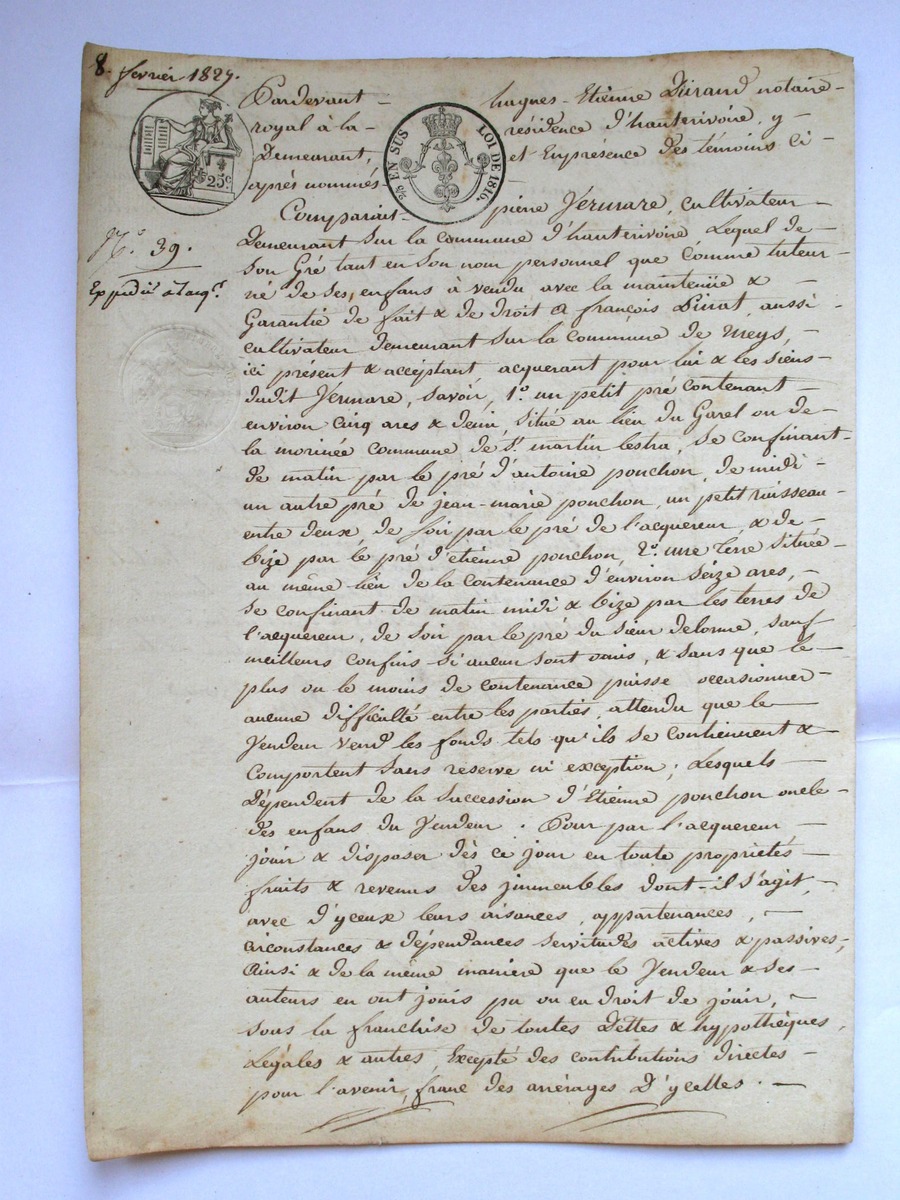 8. fevrier 1827.
Pardevant - hugues - Etiènne Durand notaire -
royal à la - résidence d'hauterivoire, y -
Demeurant, et Enprésence des témoins Ci -
après nommés -
25c.
2/5 EN SUS LOI DE 1816.
Comparait - pierre Vermare, cultivateur
Demeurant sur la commune d'hauterivoire Lequel de -
Son Gré tant en son nom personnel que Comme tuteur
N.o 39.
né de ses, enfans à vendu avec la maintenüe &
Expédié à l'acq.r
Garantie de fait & de Droit a françois Pinat, aussi
cultivateur demeurant sur la commune de meys, -
ici present & accéptant acquerant pour lui & les siens -
dudit Vermare, savoir, 1.o un petit pré contenant -
environ cinq ares & demi, situé au lieu du Garel ou de -
la morinée commune de S.t martin lestra, se confinant -
de matin par le pré d'antoine ponchon, de midi -
un autre pré de jean-marie ponchon, un petit ruisseau -
entre deux, de soir par le pré de l'acquereur, & de -
bize par le pré d'etiènne ponchon, 2.o une terre située -
au même lieu de la contenance d'environ seize ares, -
se confinant de matin midi & bize par les terres de
l'acquereur, de soir par le pré du sieur delorme, sauf
meilleurs confins si aucun sont vrais, & sans que le -
plus ou le moins de contenance puisse occasionner -
aucune difficulté entre les parties, attendu que le -
Vendeur vend les fonds tels qu'ils se contiennent &
Comportent sans reserve ni exception; Lesquels -
Dépendent de la Succession d'Etiènne ponchon oncle -
des enfans du Vendeur. Pour par l'acquereur -
jouir & disposer dès ce jour en toute propriétés -
fruits & revenus des jmmeubles dont-il s'agit, -
avec d'yceux leurs aisances, appartenances, -
circonstances & dépendances servitudes actives & passives,
Ainsi & de la même maniere que le Vendeur & ses -
auteurs en ont jouis pu ou eu droit de jouir, -
sous la franchise de toutes Dettes & hypothèques,
Légales & autres, Excepté des contributions directes -
pour l'avenir, franc des arrérages d'ycelles. -